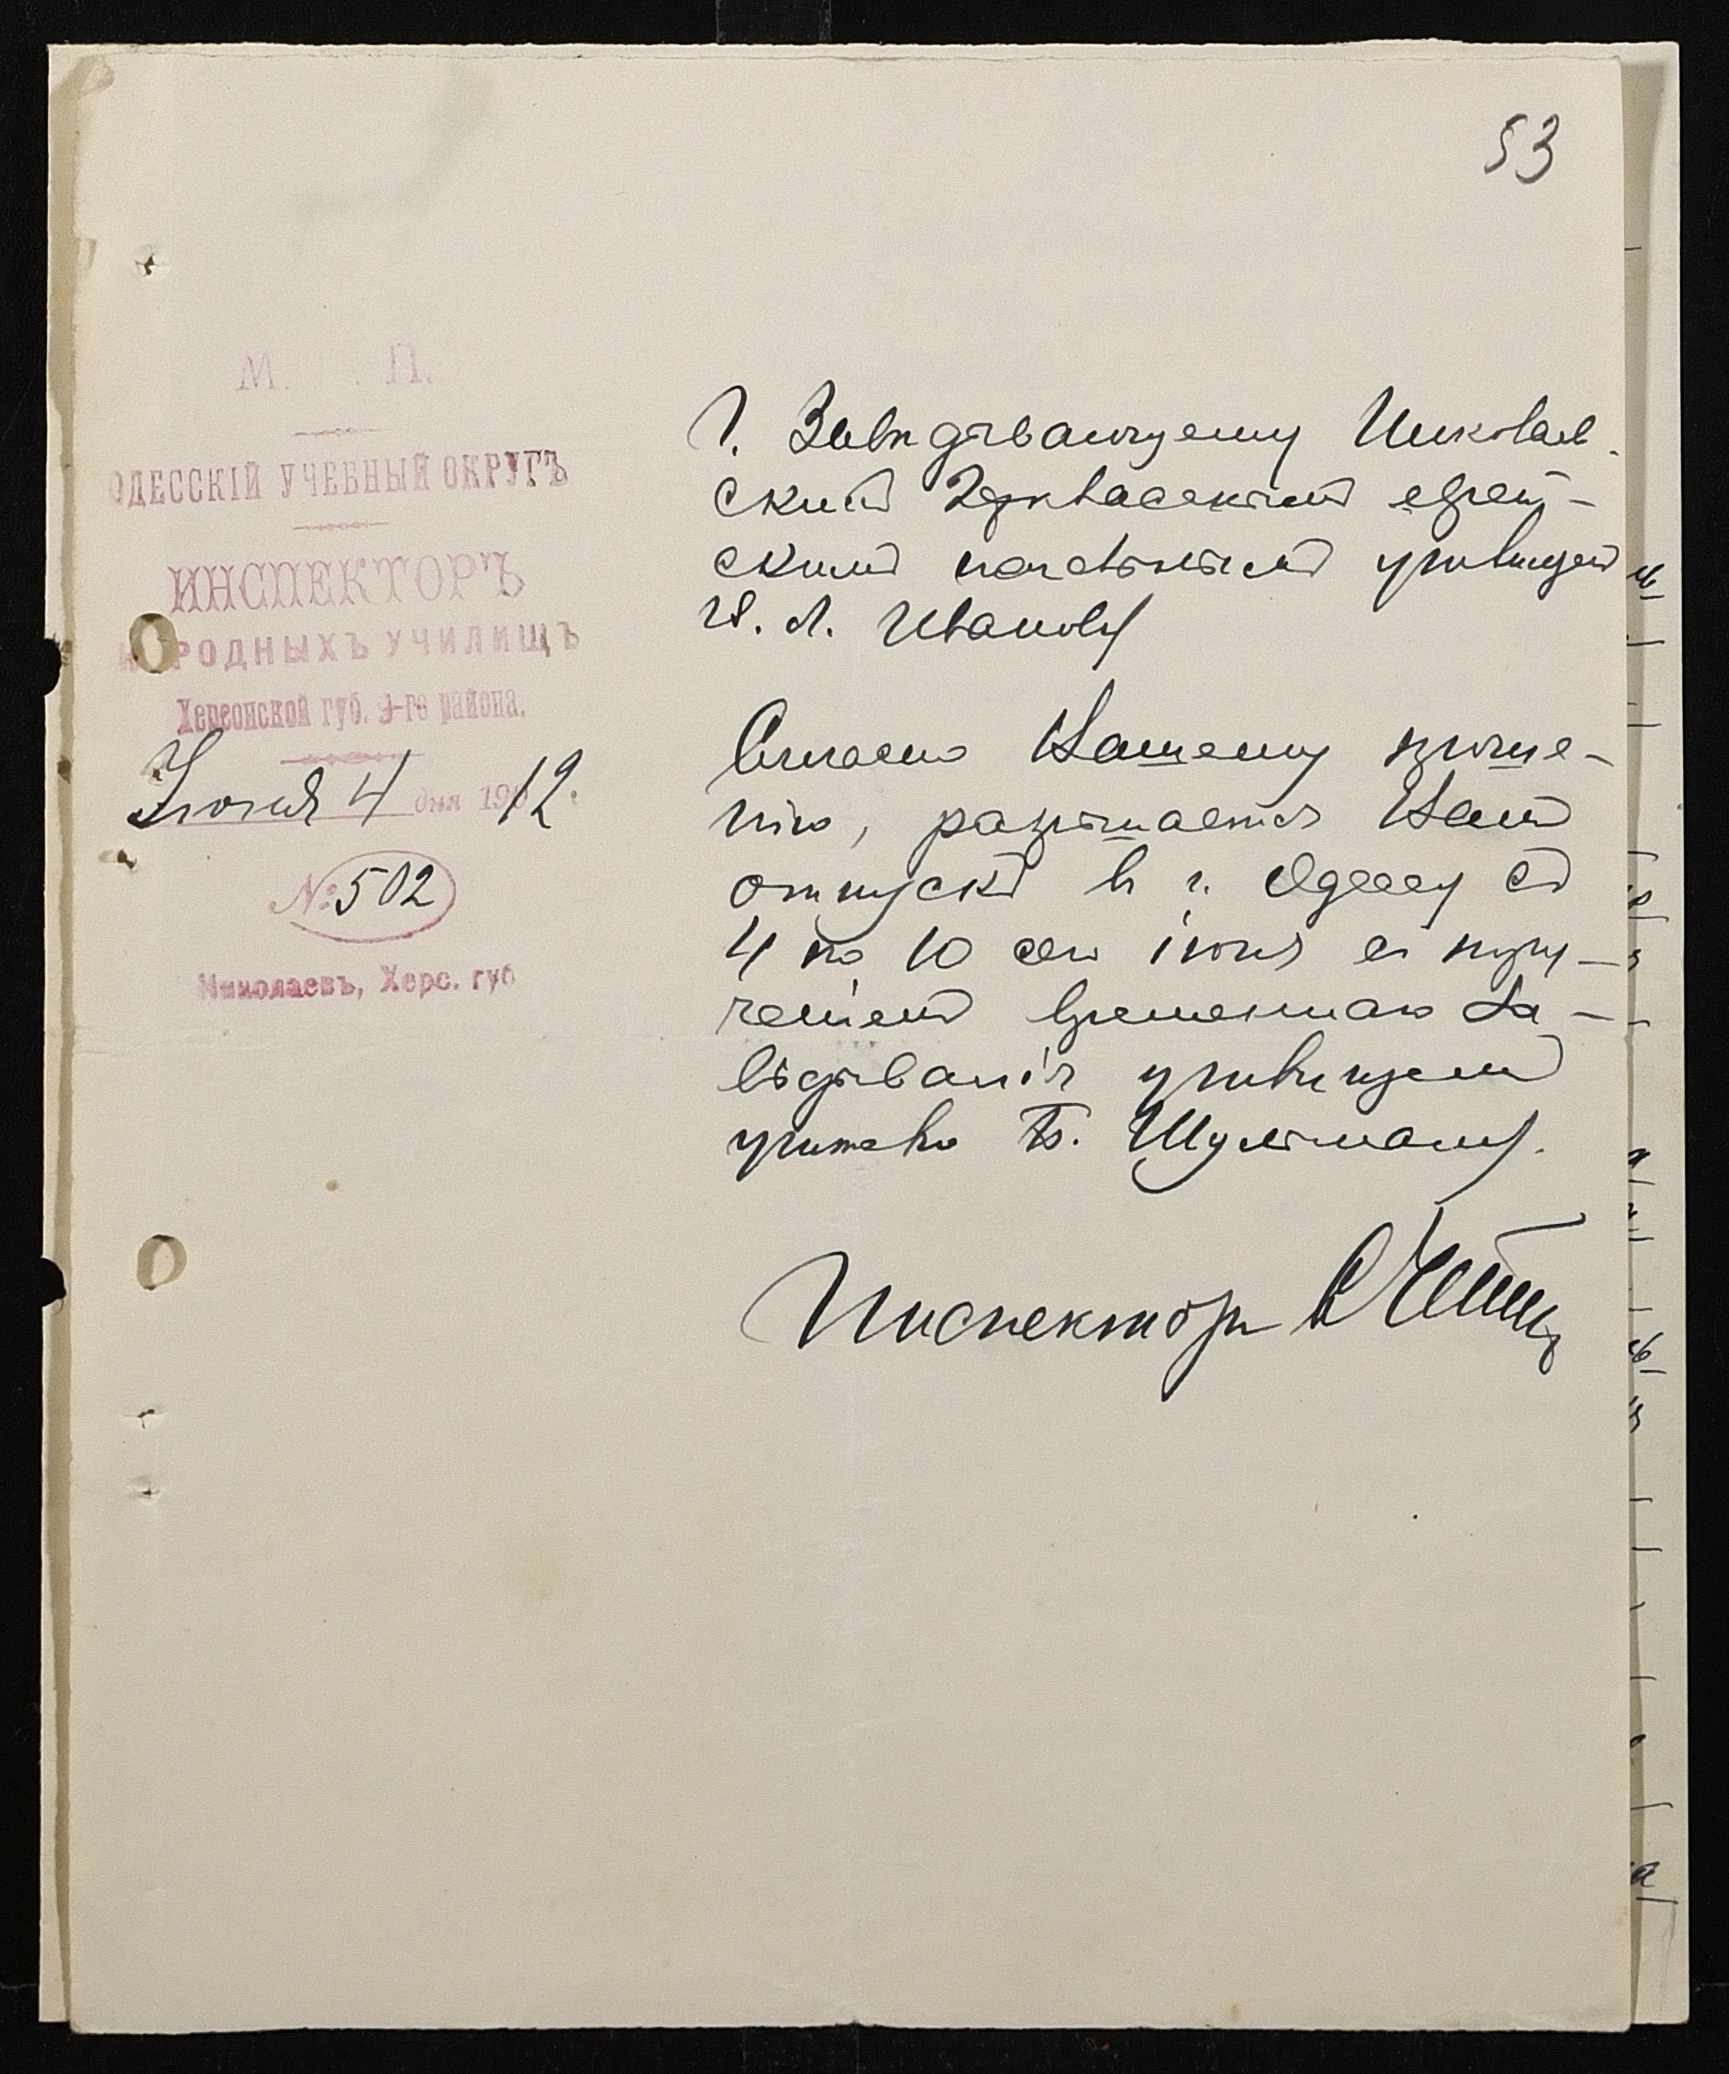 53
М. П.
ОДЕССКІЙ УЧЕБНЫЙ ОКРУГЪ
ИНСПЕКТОРЪ
НАРОДНЫХЪ УЧИЛИЩЪ
Херсонской губ. 9-го района.
Іюня 4 дня 1912.
№ 502
Николаевъ, Херс. губ
Г. Завѣдывающему Николаев
скимъ 2хъкласснымъ еврей-
скимъ начальнымъ училищемъ
Ивановy
Согласно Вашему проше-
нію, разрѣшается Вамъ
отпускъ въ г. Одессу съ
4 по 10 сего іюня съ пору-
ченіемъ временнаго за-
вѣдыванія училищемъ
учителю Б. Шульману.
Инспекторъ